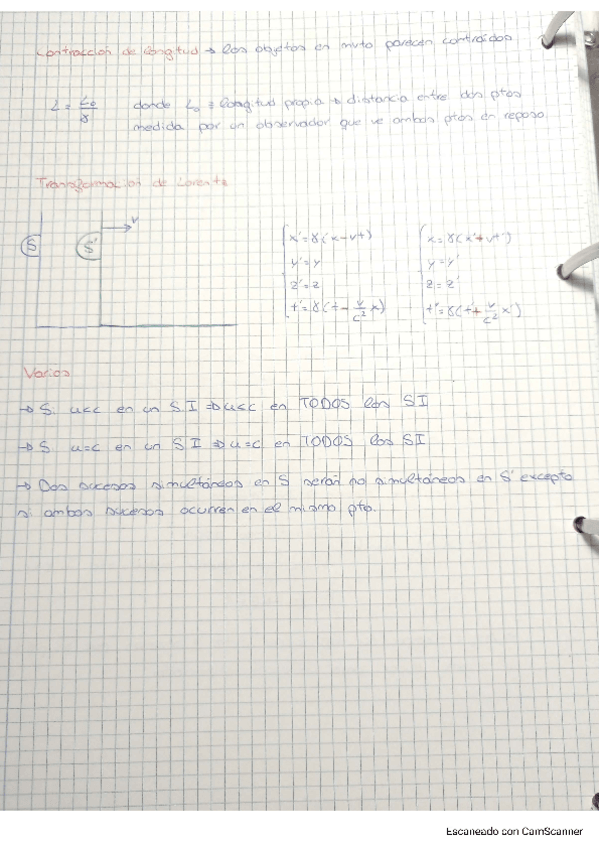 Contracción de longitud → los objetos en mvto parecen contraídos
L = L₀/γ donde L₀ ≡ longitud propia → distancia entre dos ptos
medida por un observador que ve ambos ptos en reposo.
Transformación de Lorentz
S S' v
x' = γ(x - vt) x = γ(x' + vt')
y' = y y = y'
z' = z z = z'
t' = γ(t - v/c² x) t' = γ(t' + v/c² x')
Varios
→ Si u<c en un SI ⇒ u<c en TODOS los SI
→ Si u=c en un SI ⇒ u=c en TODOS los SI
→ Dos sucesos simultáneos en S serán no simultáneos en S' excepto
si ambos sucesos ocurren en el mismo pto.
Escaneado con CamScanner